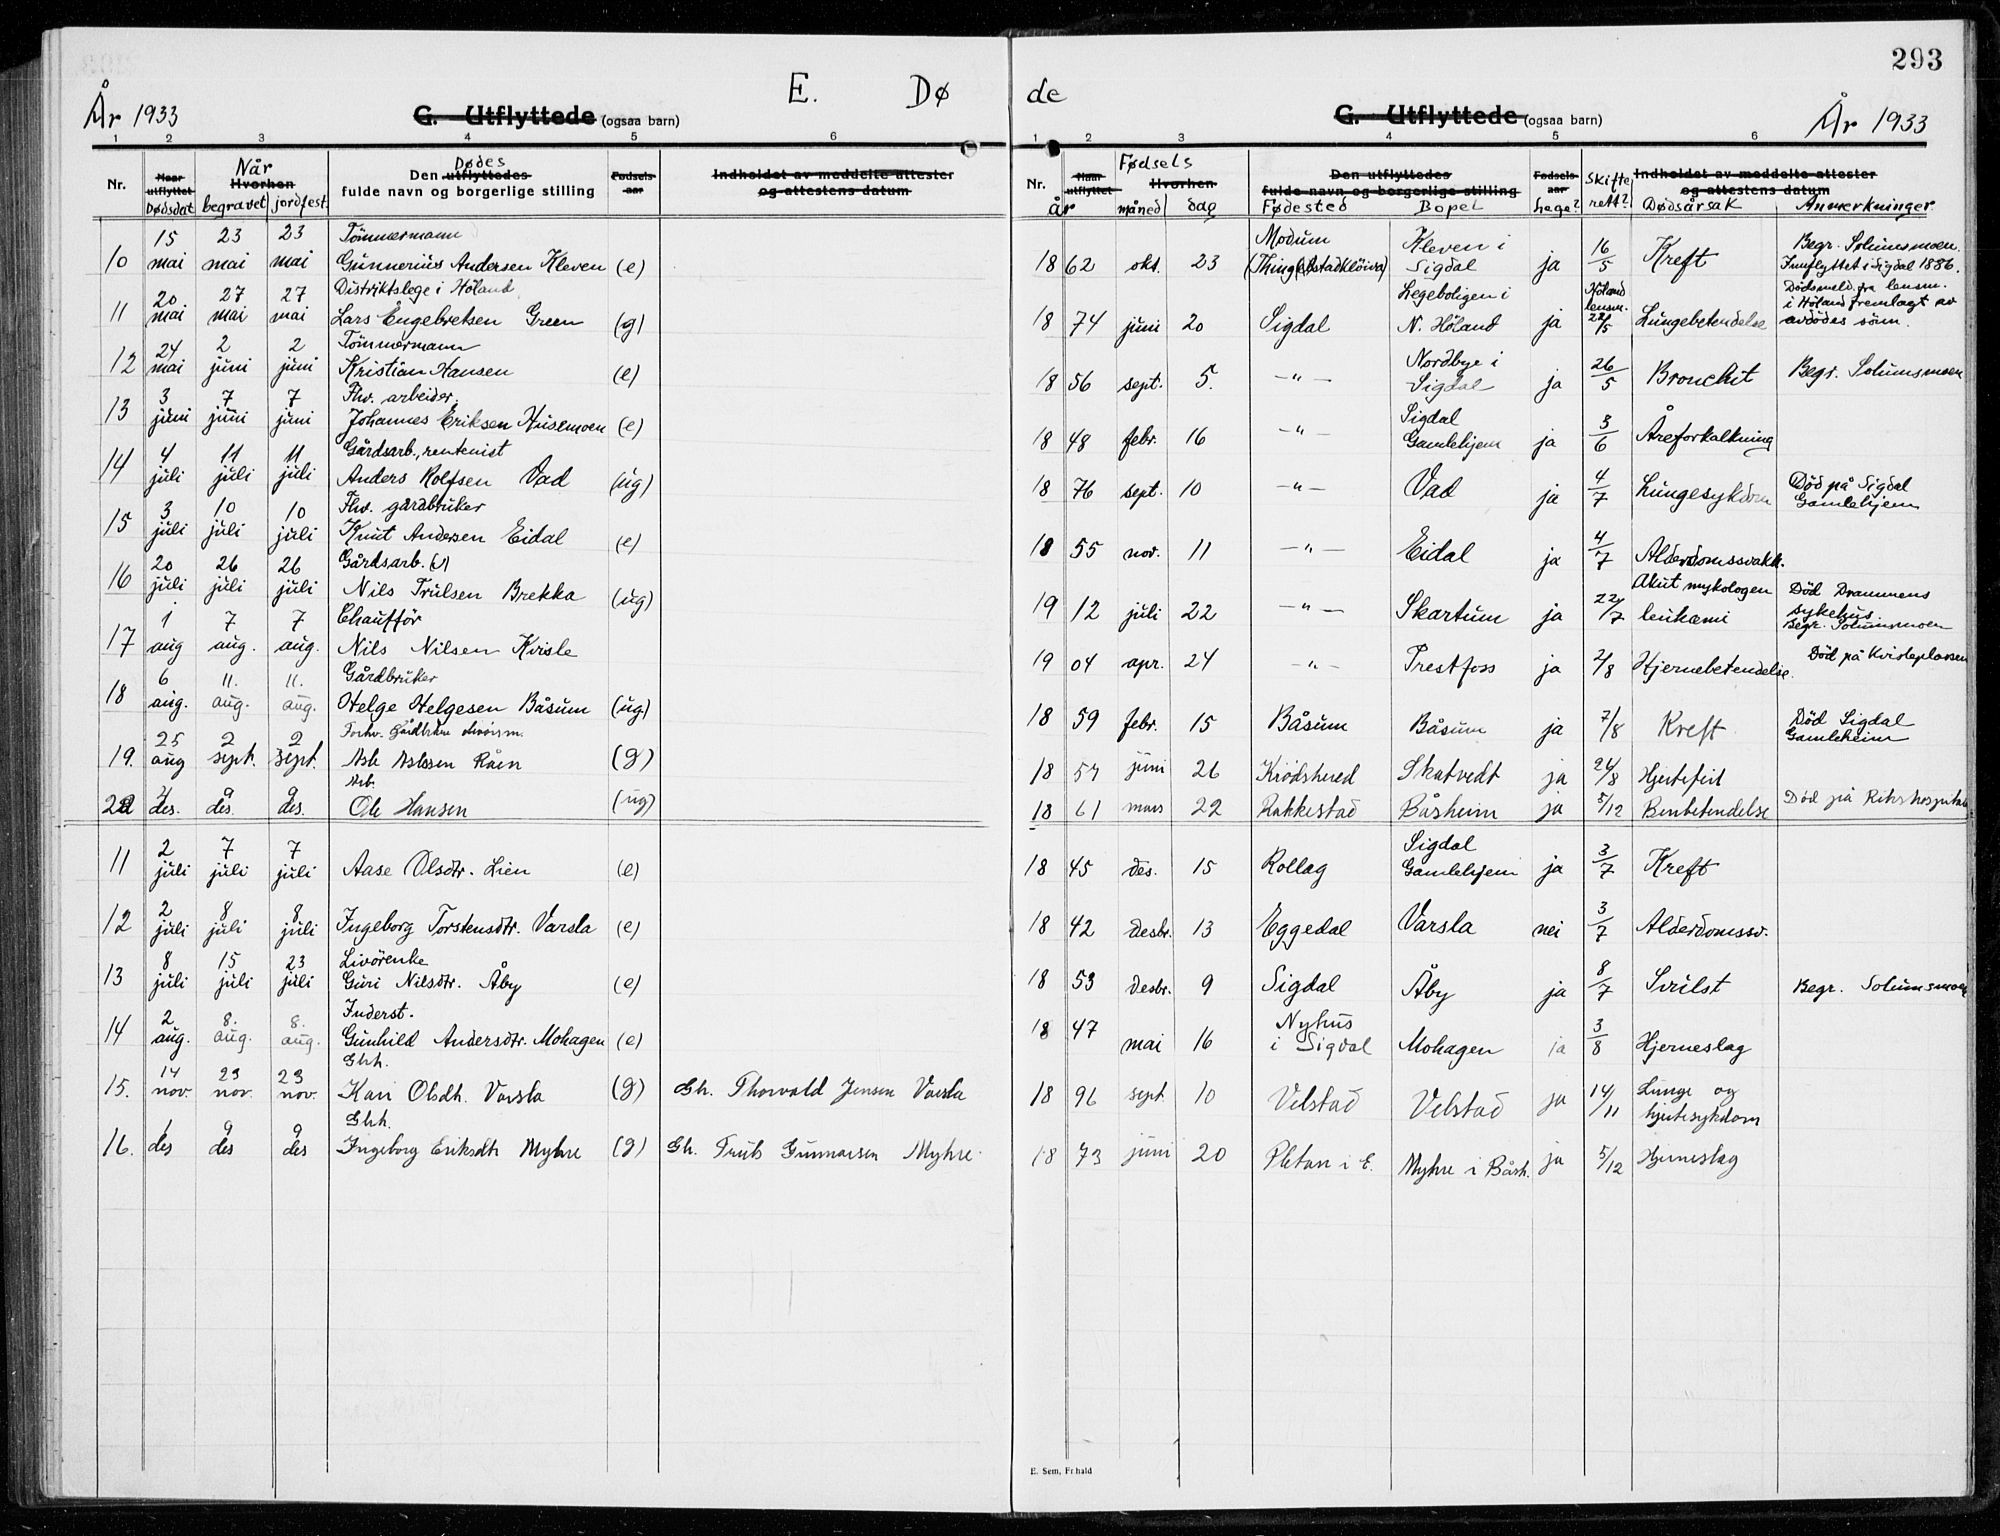 293
År 1933 E. Dø de År 1933
G. Utflyttede (ogsaa barn) G. Utflyttede (ogsaa barn)
1 2 3 4 5 6 1 2 3 4 5 6
Nr. Naar utflyttet Dødsdat Når Hvorhen begravet jordfest. Den utflyttedes Dødes fulde navn og borgerlige stilling Fødsels-aar Indholdet av meddelte attester og attestens datum
Nr. Naar utflyttet år Fødsels Hvorhen måned dag Den utflyttedes fulde navn og borgerlige stilling Fødested Bopel Fødsels-aar Lege? Skifterett? Indholdet av meddelte attester og attestens datum Dødsårsak Anmerkninger
10 15 mai 23 mai 23 mai Tömmermann Gunnerius Andersen Kleven (e) 1862 okt. 23 Modum Kleven i Sigdal ja 16/5 Kreft Begr. Solumsmoen. Innflyttet i Sigdal 1886.
11 20 mai 27 mai 27 mai Distriktslege i Höland Lars Engebretsen Green (g) 1874 juni 20 Sigdal Legeboligen i N. Höland ja Höland lensm. 22/5 Lungebetendelse Dödsmeld. fra lensm. i Höland fremlagt av avdödes sönn.
12 24 mai 2 juni 2 juni Tömmermann Kristian Hansen (e) 1856 sept. 5. —"— Nordbye i Sigdal ja 26/5 Bronchit Begr. Solumsmoen
13 3 juni 7 juni 7 juni Fhv. arbeider, Johannes Eriksen Husemoen (e) 1848 febr. 16 —"— Sigdal Gamlehjem ja 3/6 Åreforkalkning
14 4 juli 11 juli 11 juli Gårdsarb., rentenist Anders Rolfsen Vad (ug) 1876 sept. 10 —"— Vad ja 4/7 Lungesykdom Död på Sigdal Gamlehjem
15 3 juli 10 juli 10 juli Fhv. gårdbruker Knut Andersen Eidal (e) 1855 nov. 11 —"— Eidal ja 4/7 Alderdomssvakh.
16 20 juli 26 juli 26 juli Gårdsarb. Nils Trulsen Brekka (ug) 1912 juli 22 —"— Skartum ja 22/7 Akut mykologen leukæmi Död Drammens sykehus. Begr. Solumsmoen
17 1 aug 7 aug. 7 aug. Chaufför Nils Nilsen Kvisle 1904 apr. 24 —"— Prestfoss ja 2/8 Hjernebetendelse. Död på Kvisleplassen
18 6 aug. 11. aug. 11. aug. Gårdbruker Helge Helgesen Båsum (ug) 1859 febr. 15 Båsum Båsum ja 7/8 Kreft Död Sigdal Gamleheim
19. 25 aug 2 sept. 2 sept. Forhv. Gårdbruker Asle Aslesen Råen (g) 1857 juni 26 Krödsherad Skatvedt ja 24/8 Hjertefeil
20 4 des. 9 des 9 des. Arb. Ole Hansen (ug) 1861 mars 22 Rakkestad Båsheim ja 5/12 Benbetendelse Död på Rikshospitalet
11 2 juli 7 juli 7 juli Aase Olsdtr. Lien (e) 1845 des. 15 Rollag Sigdal Gamlehjem ja 3/7 Kreft
12 2 juli 8 juli 8 juli Ingeborg Torstensdtr. Varsla (e) 1842 desbr. 13 Eggedal Varsla nei 3/7 Alderdomssv.
13 8 juli 15 juli 23 juli Livörenke Guri Nilsdtr. Åby (e) 1853 desbr. 9 Sigdal Åby ja 8/7 Svulst Begr. Solumsmoen
14 2 aug. 8. aug. 8. aug. Inderst. Gunhild Andersdtr. Mohagen (e) 1847 mai 16 Nyhus i Sigdal Mohagen ja 3/8 Hjerneslag
15. 14 nov. 23 nov. 23 nov. Ghh. Kari Olsdtr. Varsla (g) Gh. Thorvald Jensen Varsla 1896 sept. 10 Velstad Velstad ja 14/11 Lunge og hjertesykdom
16. 1 des 9 des 9 des Ghh. Ingeborg Eriksdtr Myhre (g) Gh. Truls Gunnarsen Myhre. 1873 juni 20 Pletan i E. Myhre i Båsh. ja 5/12 Hjerneslag
E. Sem, Fr.hald